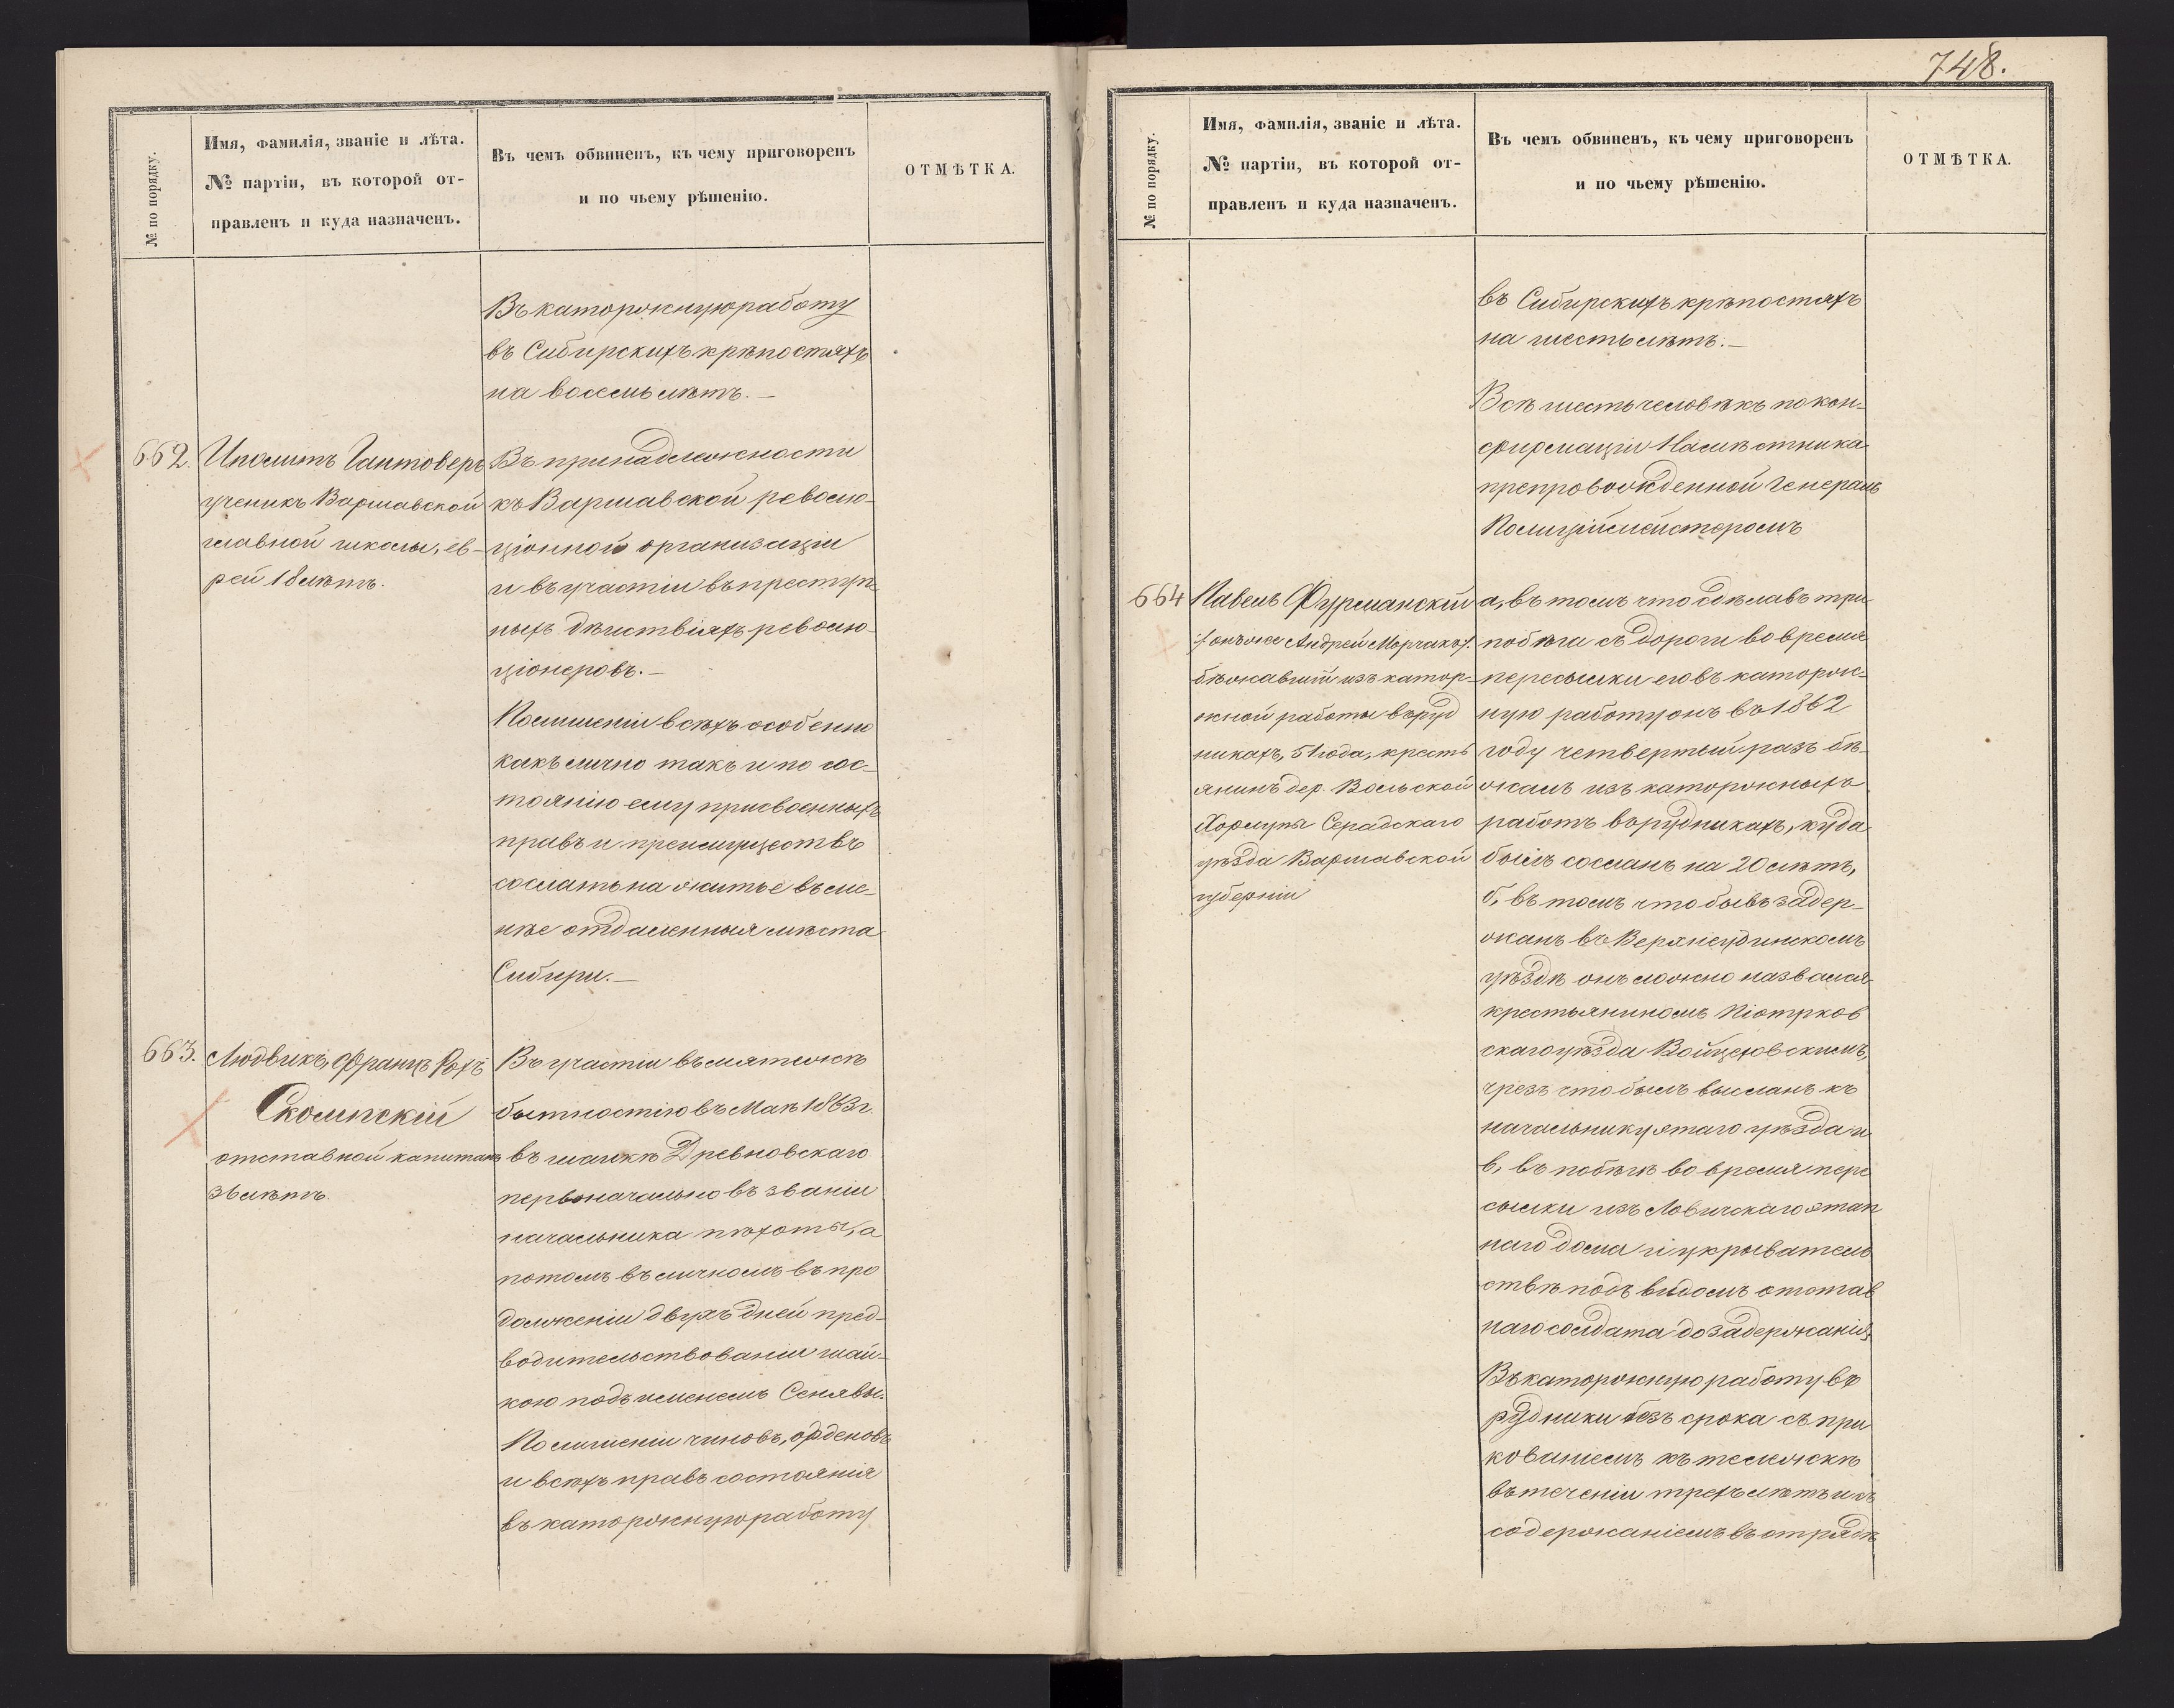 № по порядку.
Имя, фамилія, званіе и лѣта.
№ партіи, въ которой от-
правленъ и куда назначенъ.
Въ чемъ обвиненъ, къ чему приговоренъ
и по чьему рѣшенію.
ОТМѢТКА.
Въ каторожную работу
въ Сибирскихъ крѣпостяхъ
на восемь лѣтъ.—
662.
Иполитъ Гантоверъ
ученикъ Варшавской
главной школы, ев-
рей 18 лѣтъ.
Въ принадлежности
къ Варшавской револю-
ціонной организаціи
и въ участіи въ преступ-
ныхъ дѣйствіяхъ револю-
ціонеровъ.—
По лишеніи всѣхъ особенно
какъ лично такъ и по сос-
тоянію ему присвоенныхъ
правъ и преимуществъ
сослать на житье въ ме-
нѣе отдаленныя мѣста
Сибири.—
663.
Людвикъ, Францъ Рохъ
Сколинскій
отставной капитанъ
36 лѣтъ.
Въ участіи въ мятежѣ
бытностію въ Маѣ 1863 г.
въ шайкѣ Древновскаго
первоначально въ званіи
начальника пѣхоты, а
потомъ въ личномъ въ про
долженіи двухъ дней пред-
водительствованіи шай-
кою подъ именемъ Сенявы.
По лишеніи чиновъ, орденовъ
и всѣхъ правъ состоянія
въ каторожную работу
748.
№ по порядку.
Имя, фамилія, званіе и лѣта.
№ партіи, въ которой от-
правленъ и куда назначенъ.
Въ чемъ обвиненъ, къ чему приговоренъ
и по чьему рѣшенію.
ОТМѢТКА.
въ Сибирскихъ крѣпостяхъ
на шесть лѣтъ.—
Всѣ шесть человѣкъ по кон-
фирмаціи Намѣстника
препровожденной Генералъ
Полиціймейстеромъ
664
Павелъ Фурманскій
/: онъ же Андрей Морчакъ :/
бѣжавшій изъ катор-
жной работы въ руд
никахъ, 51 года, кресть
янинъ дер. Вольской
Хормупы Серадскаго
уѣзда Варшавской
губерніи
а, въ томъ что сдѣлавъ три
побѣга съ дороги во время
пересылки его въ каторож-
ную работу онъ въ 1862
году четвертый разъ бѣ-
жалъ изъ каторожныхъ
работъ въ рудникахъ, куда
былъ сосланъ на 20 лѣтъ,
б, въ томъ что бывъ задер-
жанъ въ Верхнеудинскомъ
уѣздѣ онъ ложно назвался
крестьяниномъ Піотрков
скаго уѣзда Войцеховскимъ,
чрезъ что былъ высланъ къ
начальнику этаго уѣзда и
в, въ побѣгѣ во время пере
сылки изъ Ловичскаго этап
наго дома и укрыватель
ствѣ подъ видомъ отстав
наго солдата до задержанія,
Въ каторожную работу въ
рудники безъ срока съ при
кованіемъ къ тележкѣ
въ теченіи трехъ лѣтъ и съ
содержаніемъ въ отрядѣ